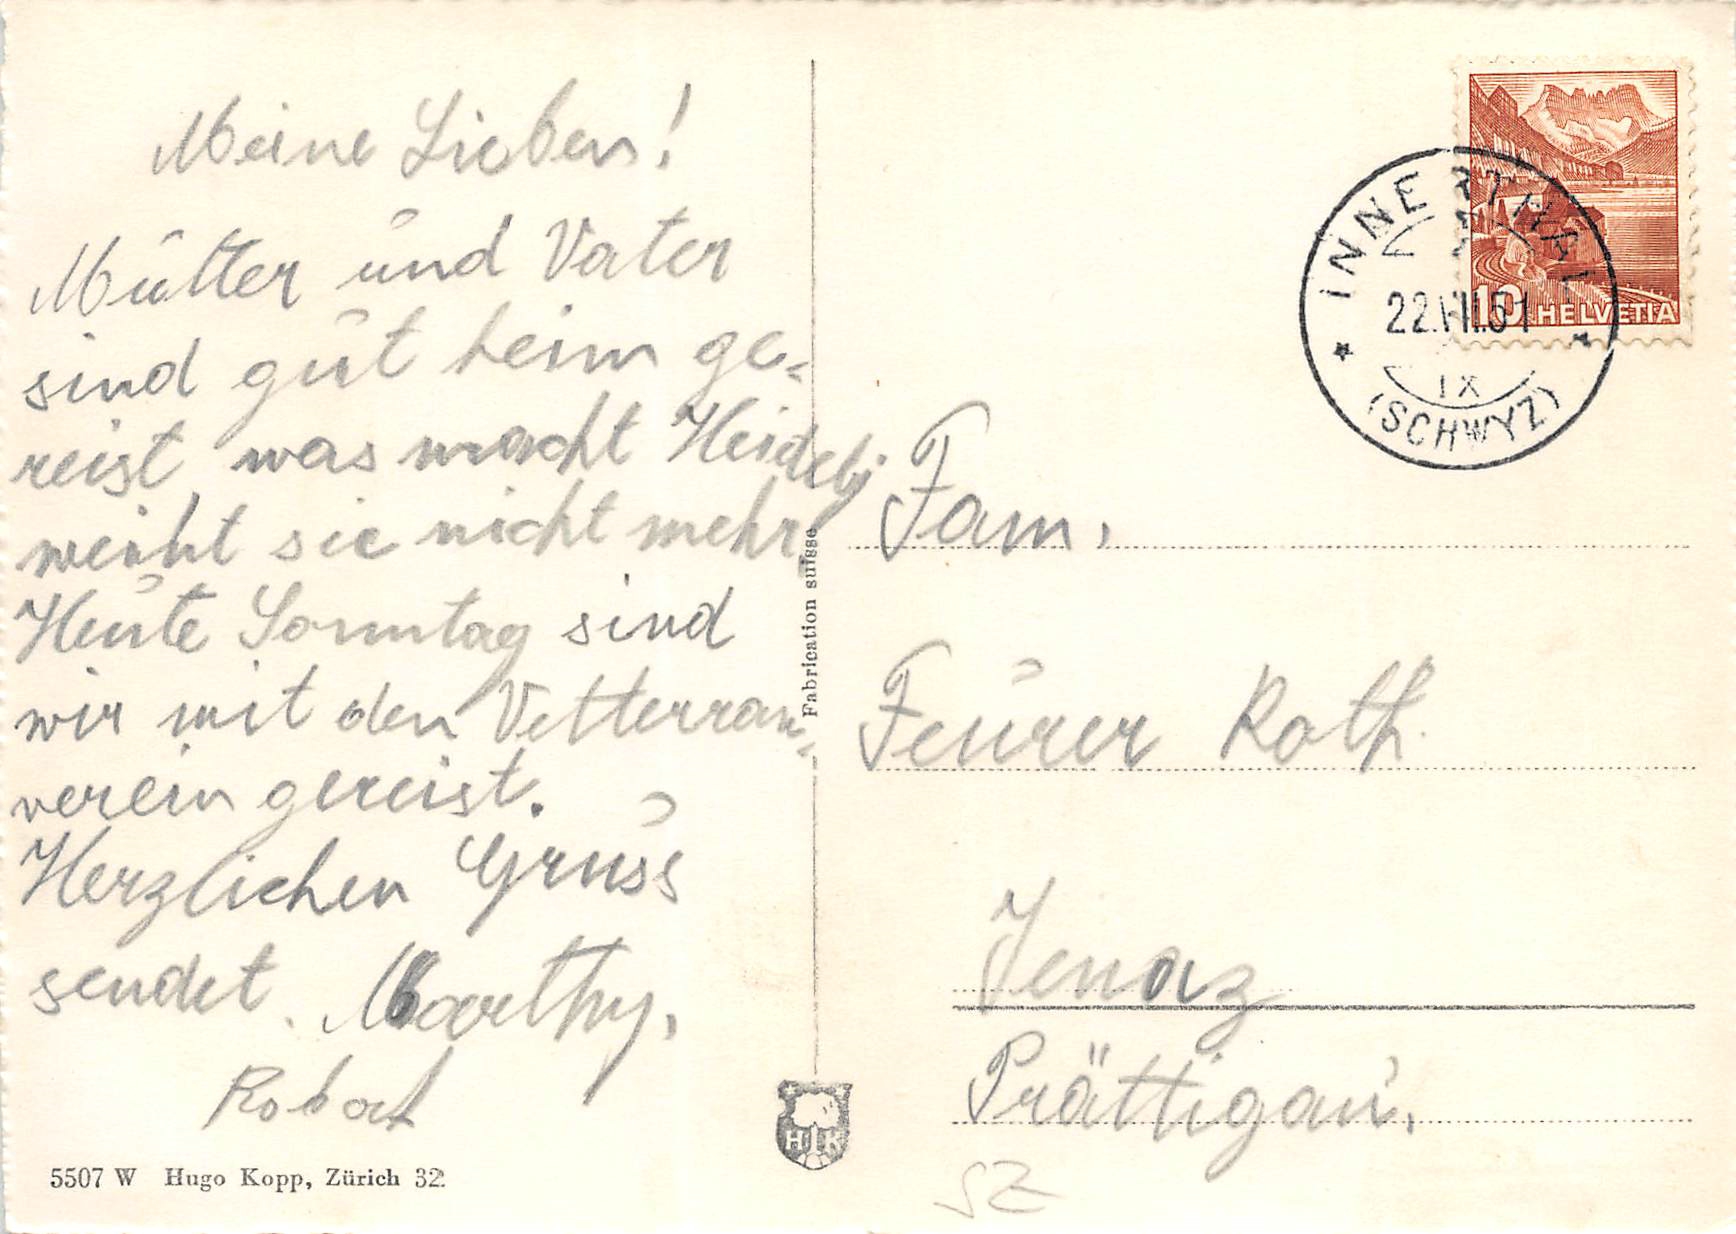 Meine Lieben!
Mutter und Vater
sind gut heim ge-
reist was macht Heideli
weint sie nicht mehr,
Heute Sonntag sind
wir mit den Vetterran-
verein gereist.
Herzlichen Gruss
sendet Marthy,
5507 W Hugo Kopp, Zürich 32.
Fabrication suisse
HK
10 HELVETIA
INNERTHAL
22.VII.51
IX
(SCHWYZ)
Fam.
Feurer Roth.
Jenaz
Prättigau.
SZ